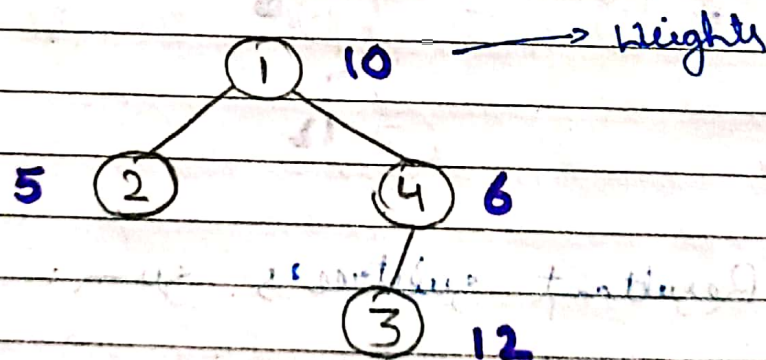 1 10 → Weights
5 2 4 6
3 12